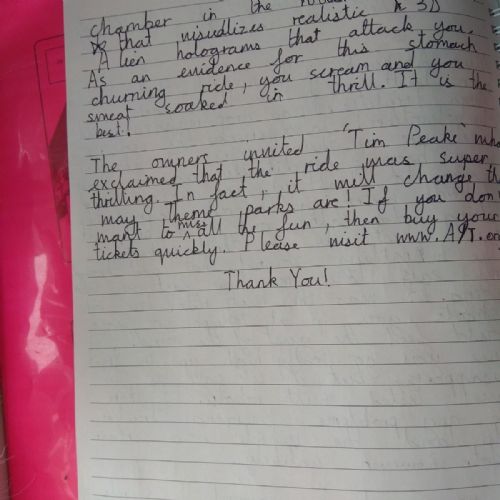 chamber in the
that visualizes realistic 3D
Alien holograms that attack you.
As an evidence for this stomach
churning ride, you scream and you
sweat soaked in thrill. It is the
best!
The owners invited 'Tim Peake' who
exclaimed that the ride was super
thrilling. In fact, it will change th
way theme parks are! If you don
want to miss all the fun, then buy your
tickets quickly. Please visit www.A/T.
Thank You!